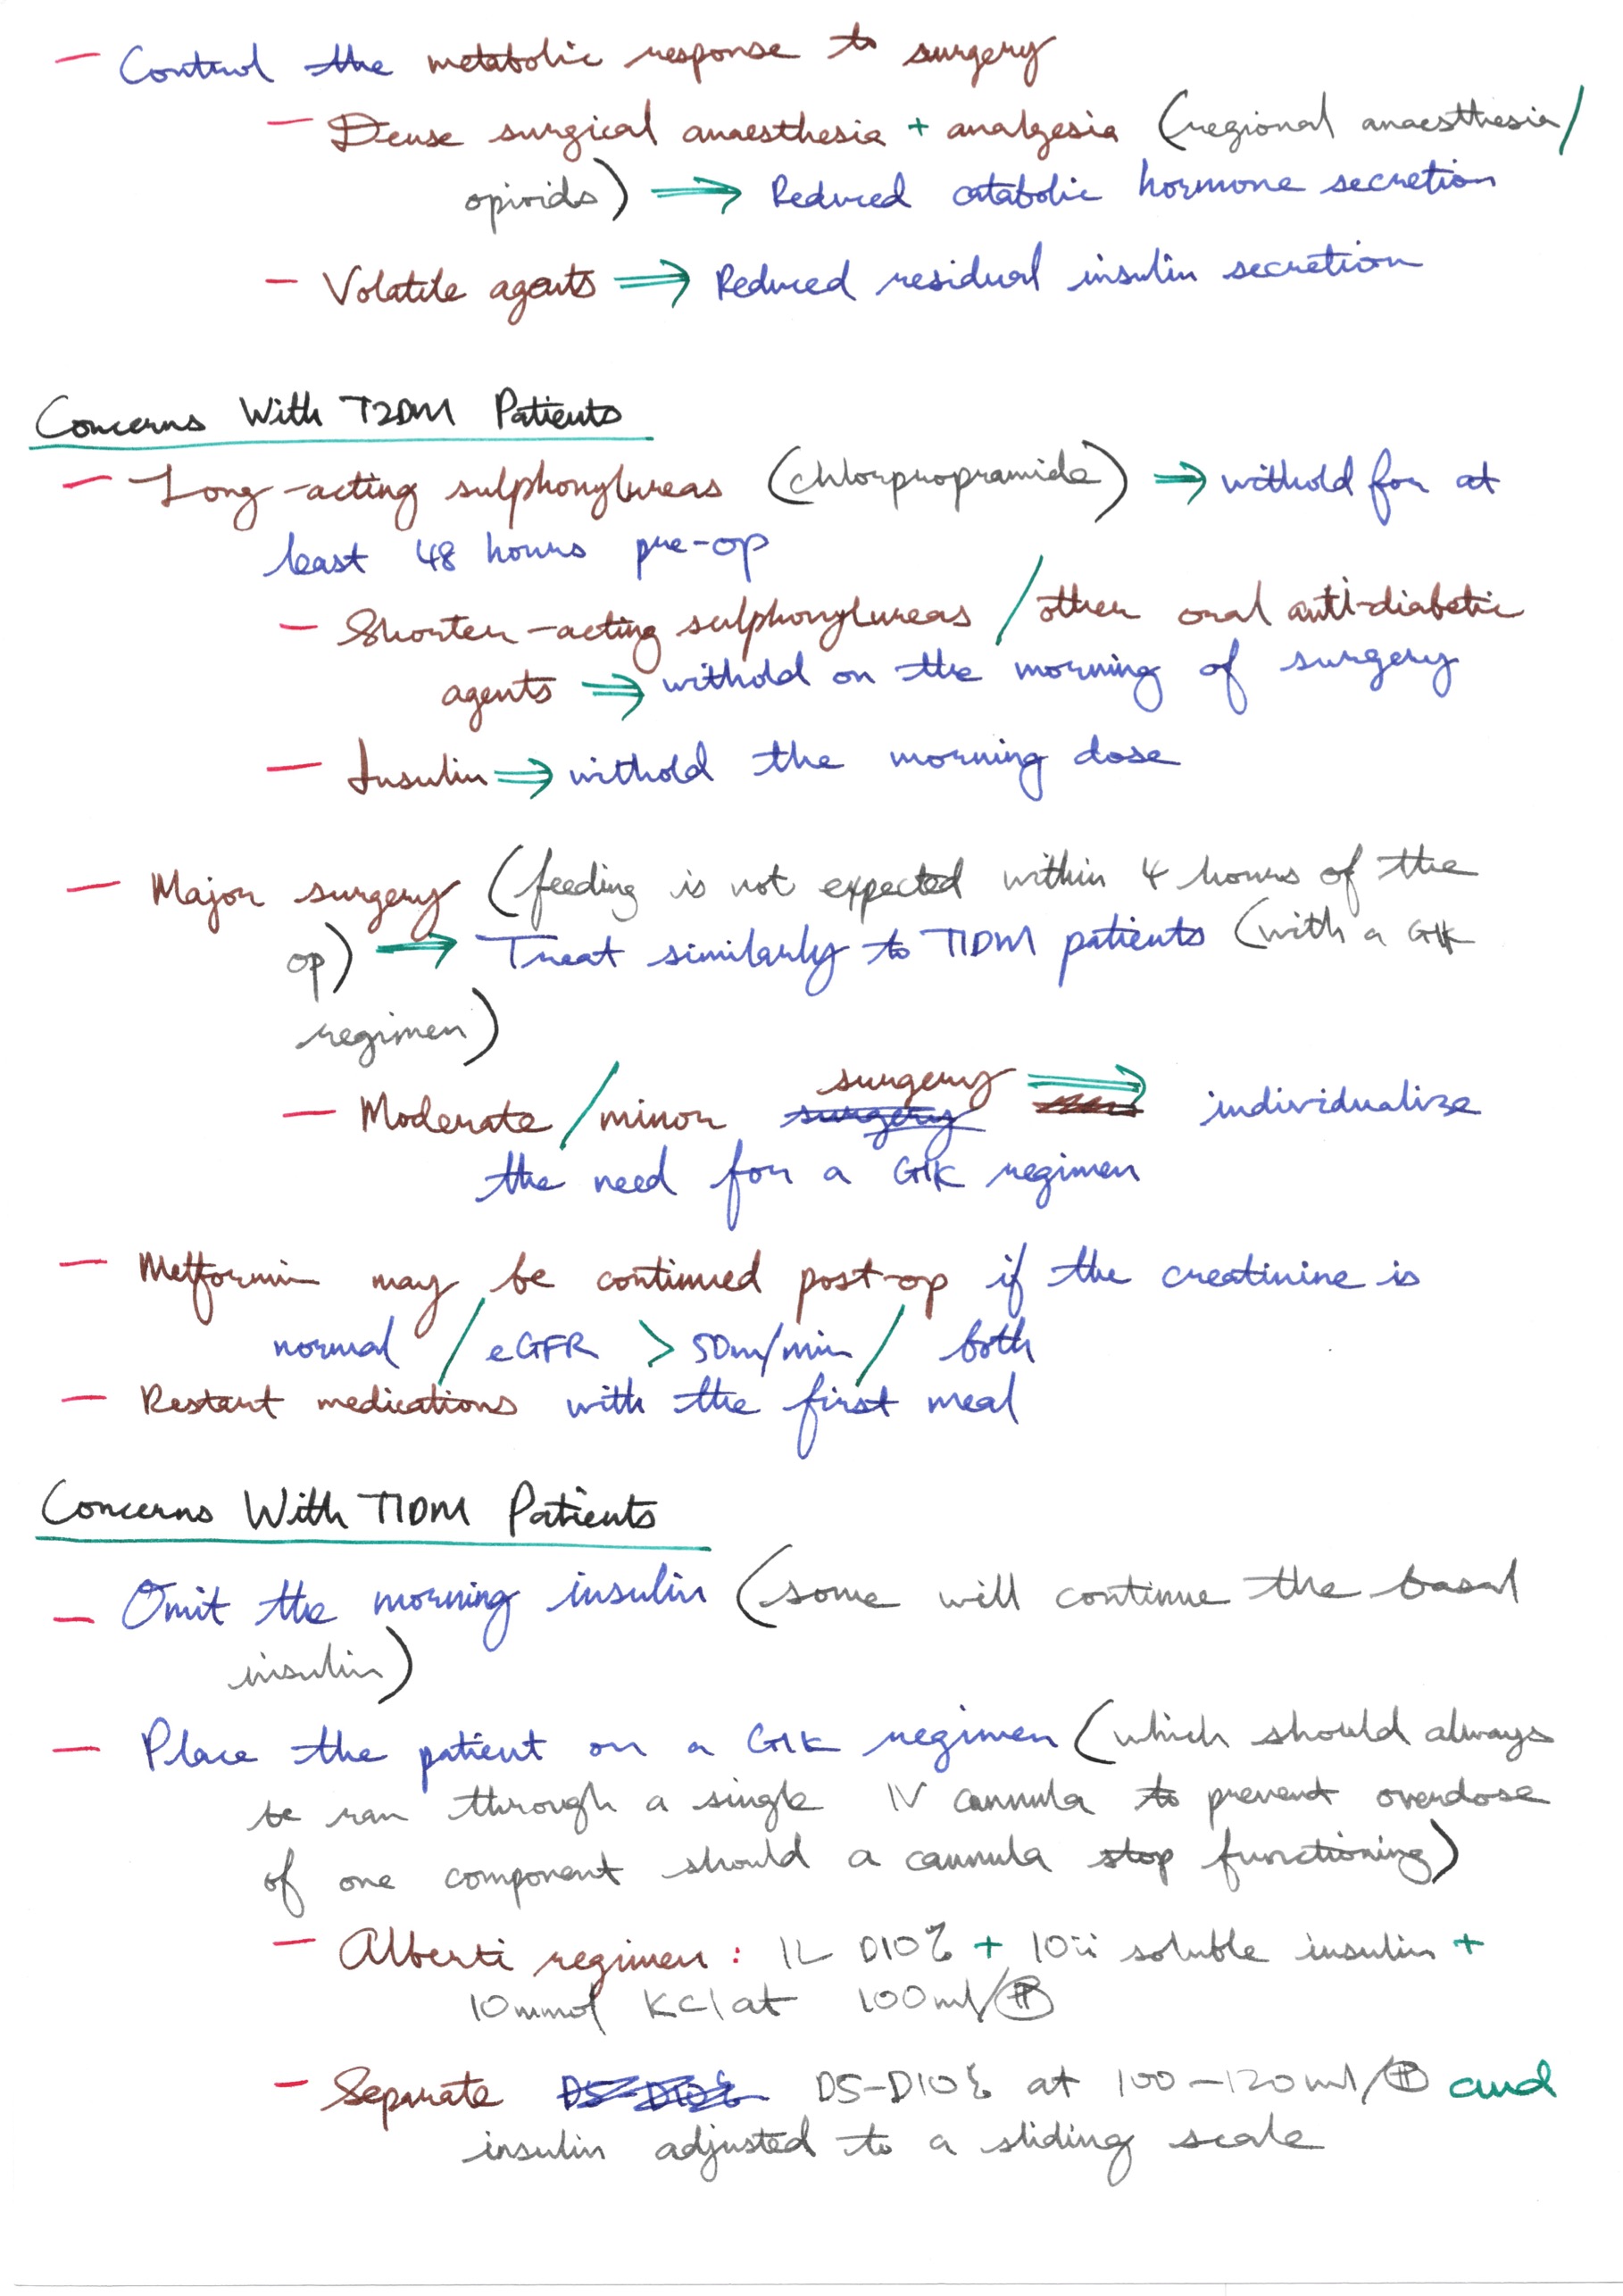 - Control the metabolic response to surgery
- Dense surgical anaesthesia + analgesia (regional anaesthesia/
opioids) ⟹ Reduced catabolic hormone secretion
- Volatile agents ⟹ Reduced residual insulin secretion
Concerns With T2DM Patients
- Long-acting sulphonylureas (chlorpropramide) ⟹ withold for at
least 48 hours pre-op
- Shorter-acting sulphonylureas / other oral anti-diabetic
agents ⟹ withold on the morning of surgery
- Insulin ⟹ withold the morning dose
- Major surgery (feeding is not expected within 4 hours of the
op) ⟹ Treat similarly to T1DM patients (with a GIK
regimen)
- Moderate / minor surgery ⟹ individualize
the need for a GIK regimen
- Metformin may be continued post-op if the creatinine is
normal / eGFR > 50m/min / both
- Restart medications with the first meal
Concerns With T1DM Patients
- Omit the morning insulin (some will continue the basal
insulin)
- Place the patient on a GIK regimen (which should always
be ran through a single IV cannula to prevent overdose
of one component should a cannula stop functioning)
- Alberti regimen: 1L D10% + 10ii soluble insulin +
10mmol KCl at 100ml/Ⓗ
- Separate D5-D10% at 100-120ml/Ⓗ and
insulin adjusted to a sliding scale